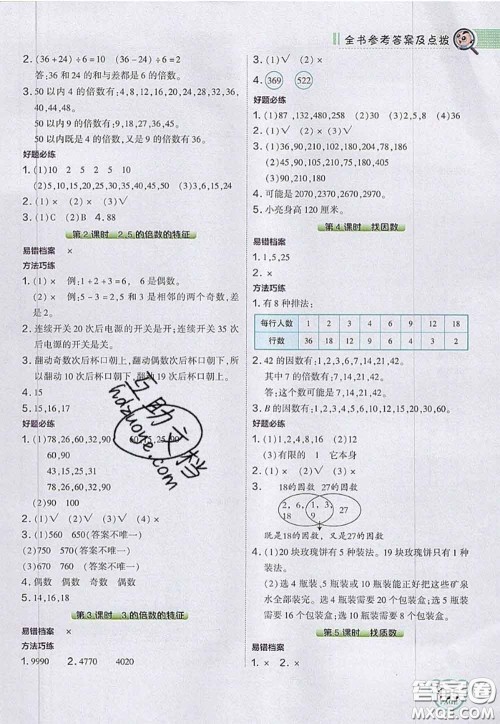 全书参考答案及点拨
2. (36+24)÷6=10 (36-24)÷6=2
答:36和24的和与差都是6的倍数。
3. 50以内4的倍数有:4,8,12,16,20,24,28,32,36,
40,44,48。
50以内9的倍数有:9,18,27,36,45。
50以内既是4的倍数,又是9的倍数有36。
好题必练
1. (1)10 2 5 2 5 10
(2)5,10,15,20,25,30,35,40,45,50
2. (1)√ (2)× (3)√ (4)×
3. (1)C (2)B 4. 88
第2课时 2,5的倍数的特征
易错档案 ×
方法巧练
1. (1)× 例:1+2+3=6,6是偶数。
(2)× 例:5-3=2,5和3是相邻的两个奇数,差
是2。
2. 连续开关20次后电源的开关是开;连续开关35次
后电源的开关是关。
3. 翻动奇数次后杯口朝上,翻动偶数次后杯口朝下。
翻动100次后杯口朝下,翻动
4. 15
5. 15,16,17
好题必练
1. (1)78,26,60,32,90
60,90
43,15,25,31
78,26,60,32,90
(2)90 100
2. (1)√ (2)× (3)√ (4)×
3. (1)560 550(答案不唯一)
(2)760 670(答案不唯一)
4. 偶数 偶数 偶数 奇数
5. 14,16,18
第3课时 3的倍数的特征
易错档案 ×
方法巧练
1. 9990 2. 4770 4020
3. (1)√ (2)×
4. 369 522
好题必练
1. (1)87,132,480,258 (2)30 (3)90
2. (1)√ (2)× (3)× (4)×
3. (1)36,90,210,102,180,216,378,90
(2)36,90,210,102,180,216,378,54
(3)90,210,180
4. 可能是2070,2370,2670,2970。
5. 小亮身高120厘米。
第4课时 找因数
易错档案
1. 1,5,25
2. ×
方法巧练
1. 有8种排法:
每行人数 1 2 3 4 6 9 12 18
行数 36 18 12 9 6 4 3 2
2. 42的因数有:1,2,3,6,7,14,21,42。
其中7的倍数有:7,14,21,42。
答:这个数可能是7,14,21,42。
3. B的因数有:1,2,3,4,6,7,12,14,21,28,42,84。
好题必练
1. (1)1,2,4,8,16 (2)18 18
(3)有限的 1 它本身
2. (1)√ (2)× (3)√ (4)×
3. 18的因数 27的因数
2, 6, 18 1, 3, 9 27
既是18的因数,又是27的因数
4. (1)20块玫瑰饼有5种装法。19块玫瑰饼只有一
种装法。(2)选4瓶装、5瓶装都可以把这些矿泉
水全部装完。选4瓶装需要20个包装盒;选5瓶
装需要16个包装盒;选8瓶装需要10个包装盒;
选10瓶装需要8个包装盒。
第5课时 找质数
易错档案
×
互助文档
hdzuone.com
答案圈
MXQE.COM